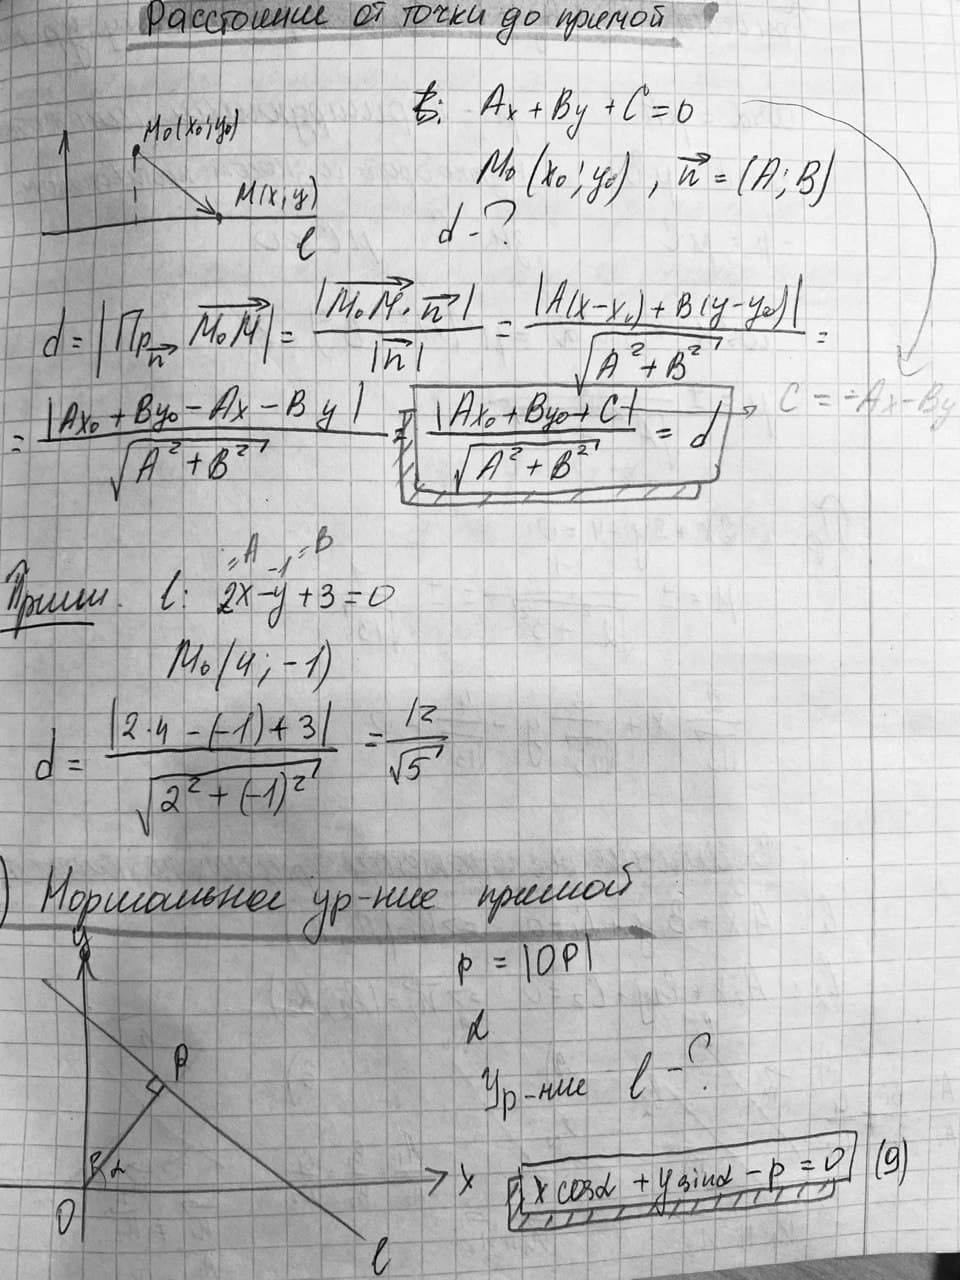 Расстояние от точки до прямой
ℓ: Ax + By + C = 0
M₀(x₀; y₀)
M₀(x₀; y₀), n⃗ = (A; B)
M(x; y)
ℓ
d - ?
d = |Пр_n⃗ M₀M⃗| = |M₀M⃗ · n⃗| / |n⃗| = |A(x-x₀) + B(y-y₀)| / √(A² + B²) =
= |Ax₀ + By₀ - Ax - By| / √(A² + B²) = |Ax₀ + By₀ + C| / √(A² + B²) = d → C = -Ax - By
=A -1 =B
Прим. ℓ: 2x - y + 3 = 0
M₀(4; -1)
d = |2·4 - (-1) + 3| / √(2² + (-1)²) = 12 / √5
) Нормальное ур-ние прямой
y
p = |OP|
α
P
Ур-ние ℓ - ?
α
x
x cosα + y sinα - p = 0 (9)
O
ℓ